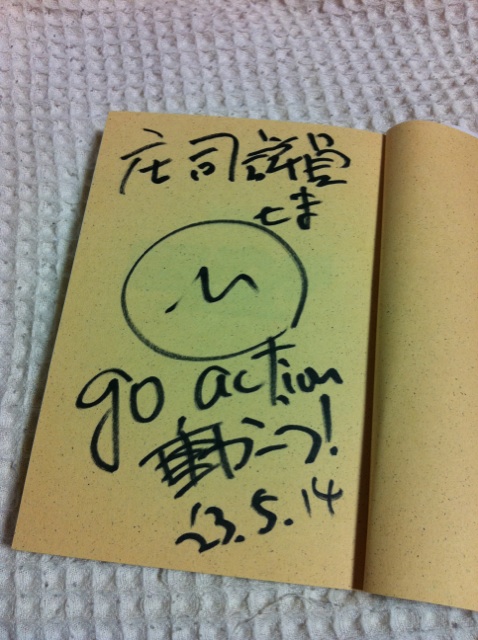 庄司議員
さま
go action
動こう!
'23.5.14